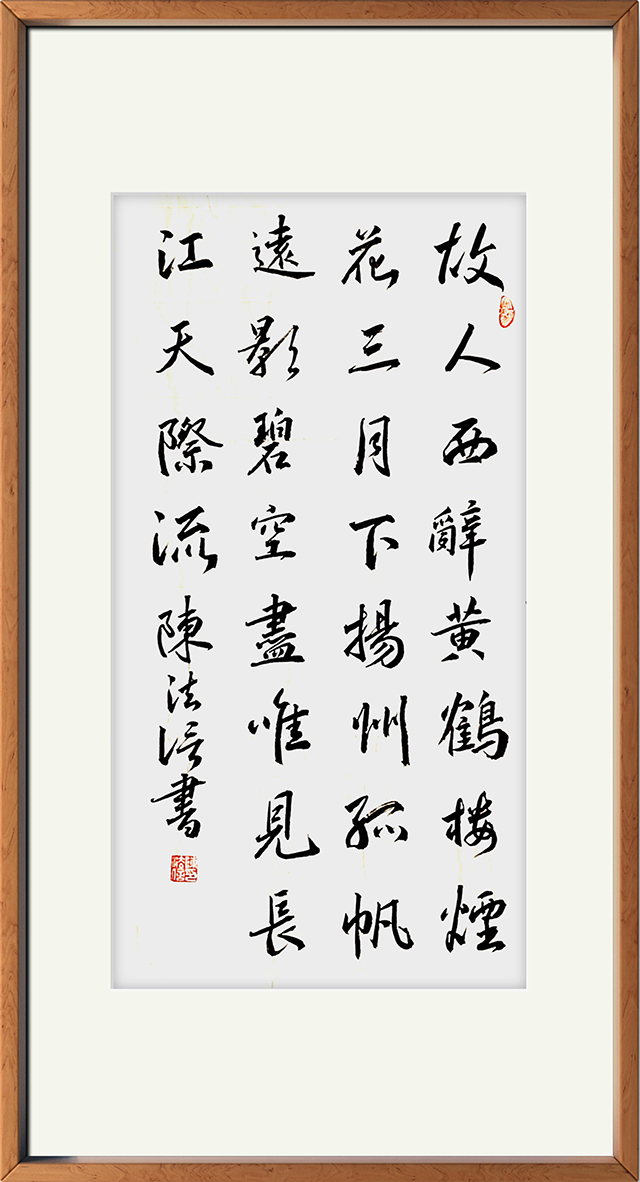 故人西辭黄鶴楼煙
花三月下揚州孤帆
遠影碧空盡唯見長
江天際流陳法信書